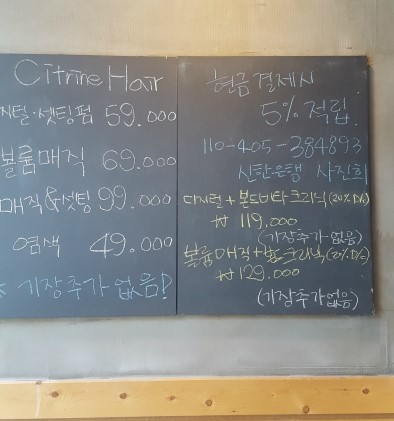 Citrine Hair
지털·셋팅펌 59.000
볼륨매직 69.000
매직&셋팅 99.000
염색 49.000
기장추가 없음!
현금결제시
5% 적립
110-405-384893
신한은행 사진희
디지털+본드비타크리닉(20% D/C)
₩ 119,000
(기장추가 없음)
볼륨매직+ 크리닉(20% D/C)
₩ 129.000
(기장추가없음)